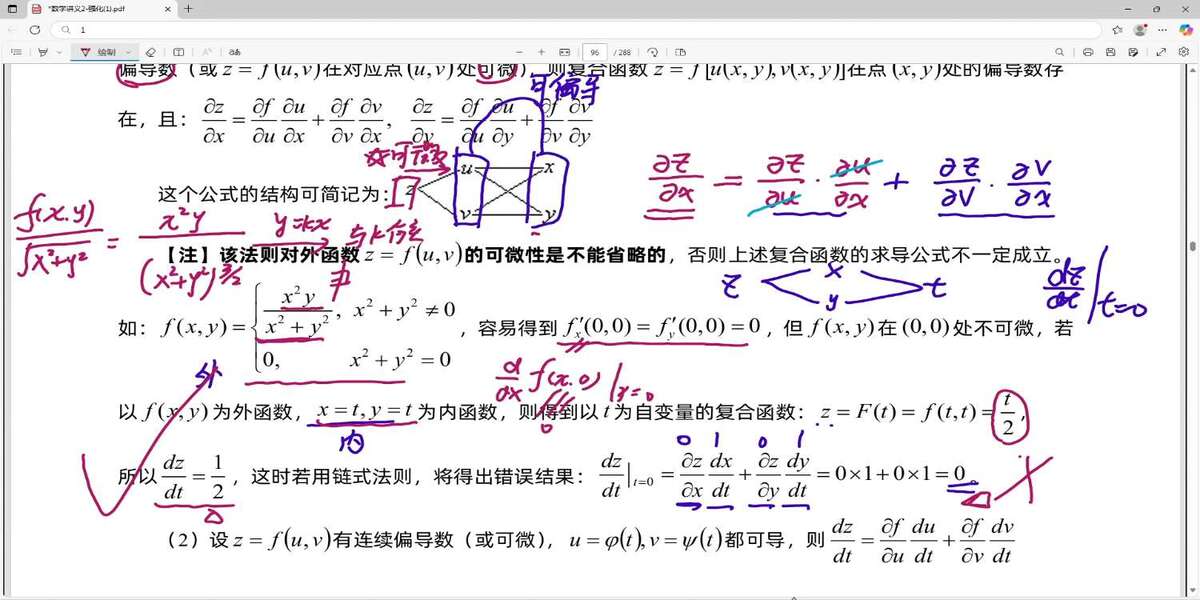 *数学讲义2-强化(1).pdf
1
绘制
96 / 288
偏导数（或 z = f(u,v) 在对应点 (u,v) 处可微），则复合函数 z = f[u(x,y),v(x,y)] 在点 (x,y) 处的偏导数存
可偏导
在，且：∂z/∂x = ∂f/∂u ∂u/∂x + ∂f/∂v ∂v/∂x, ∂z/∂y = ∂f/∂u ∂u/∂y + ∂f/∂v ∂v/∂y
u x
∂z/∂x = ∂z/∂u · ∂u/∂x + ∂z/∂v · ∂v/∂x
这个公式的结构可简记为： z
v y
f(x.y)/√x²+y² = x²y/(x²+y²)^3/2 y=kx 与k有关
【注】该法则对外函数 z = f(u,v) 的可微性是不能省略的，否则上述复合函数的求导公式不一定成立。
z x y t dz/dt|t=0
如：f(x,y) = { x²y/(x²+y²), x²+y² ≠ 0
0, x²+y² = 0
，容易得到 f'x(0,0) = f'y(0,0) = 0，但 f(x,y) 在 (0,0) 处不可微，若
外
d/dx f(x.0)|x=0
0
以 f(x,y) 为外函数，x = t, y = t 为内函数，则得到以 t 为自变量的复合函数：z = F(t) = f(t,t) = t/2，
内
0 1 0 1
所以 dz/dt = 1/2，这时若用链式法则，将得出错误结果：dz/dt|t=0 = ∂z/∂x dx/dt + ∂z/∂y dy/dt = 0×1+0×1 = 0。
（2）设 z = f(u,v) 有连续偏导数（或可微），u = φ(t), v = ψ(t) 都可导，则 dz/dt = ∂f/∂u du/dt + ∂f/∂v dv/dt